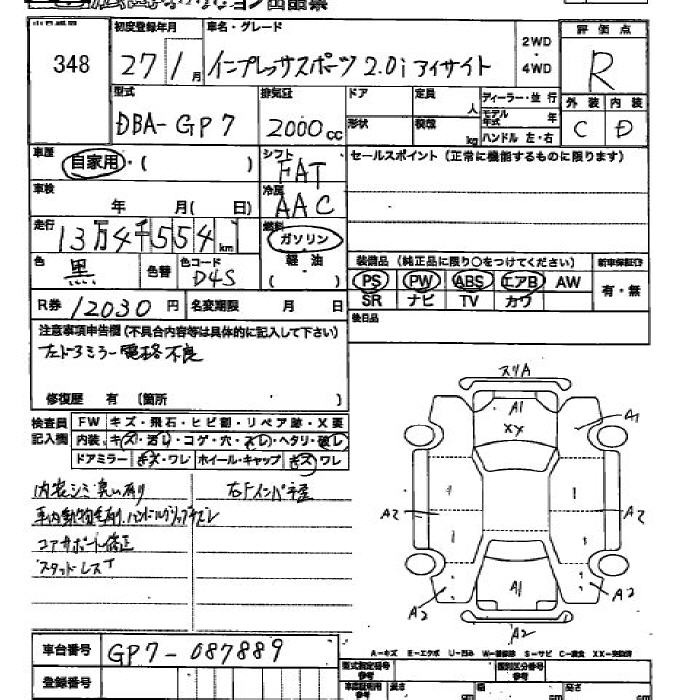 ション出品票
348
初度登録年月
27 1月
車名・グレード
インプレッサスポーツ 2.0i アイサイト
2WD
・
4WD
評価点
R
型式
DBA-GP7
排気量
2000cc
ドア
定員 人
ディーラー・並行
モデル年式 年
形状
積載 kg
ハンドル 左・右
外装 内装
C D
車歴
自家用・( )
シフト
FAT
セールスポイント(正常に機能するものに限ります)
車検
年 月( 日)
冷房
AAC
走行
13万4千554km
燃料
ガソリン
軽油
( )
色
黒
色替
色コード
D4S
装備品(純正品に限り○をつけてください)
新車保証書
PS PW ABS エアB AW
有・無
SR ナビ TV カワ
R券 12030円
名変期限 月 日
後日品
注意事項申告欄(不具合内容等は具体的に記入して下さい)
左ドアミラー電格不良
修復歴 有 (箇所 )
検査員
記入欄
FW キズ・飛石・ヒビ割・リペア跡・X要
内装 キズ・汚レ・コゲ・穴・スレ・ヘタリ・破レ
ドアミラー キズ・ワレ ホイール・キャップ キズ・ワレ
内装シミ臭い有り
右Fインパネ歪
コアサポート修正
スタッドレス
スリA
A1
XY
A1
A2
A2
A1
A2
A2
A2
A-キズ E-エクボ U-凹み W-補修跡 S-サビ C-腐食 XX-交換済
車台番号
GP7-087889
登録番号
型式指定番号
参考
類別区分番号
参考
長さ cm
幅 cm
高さ cm